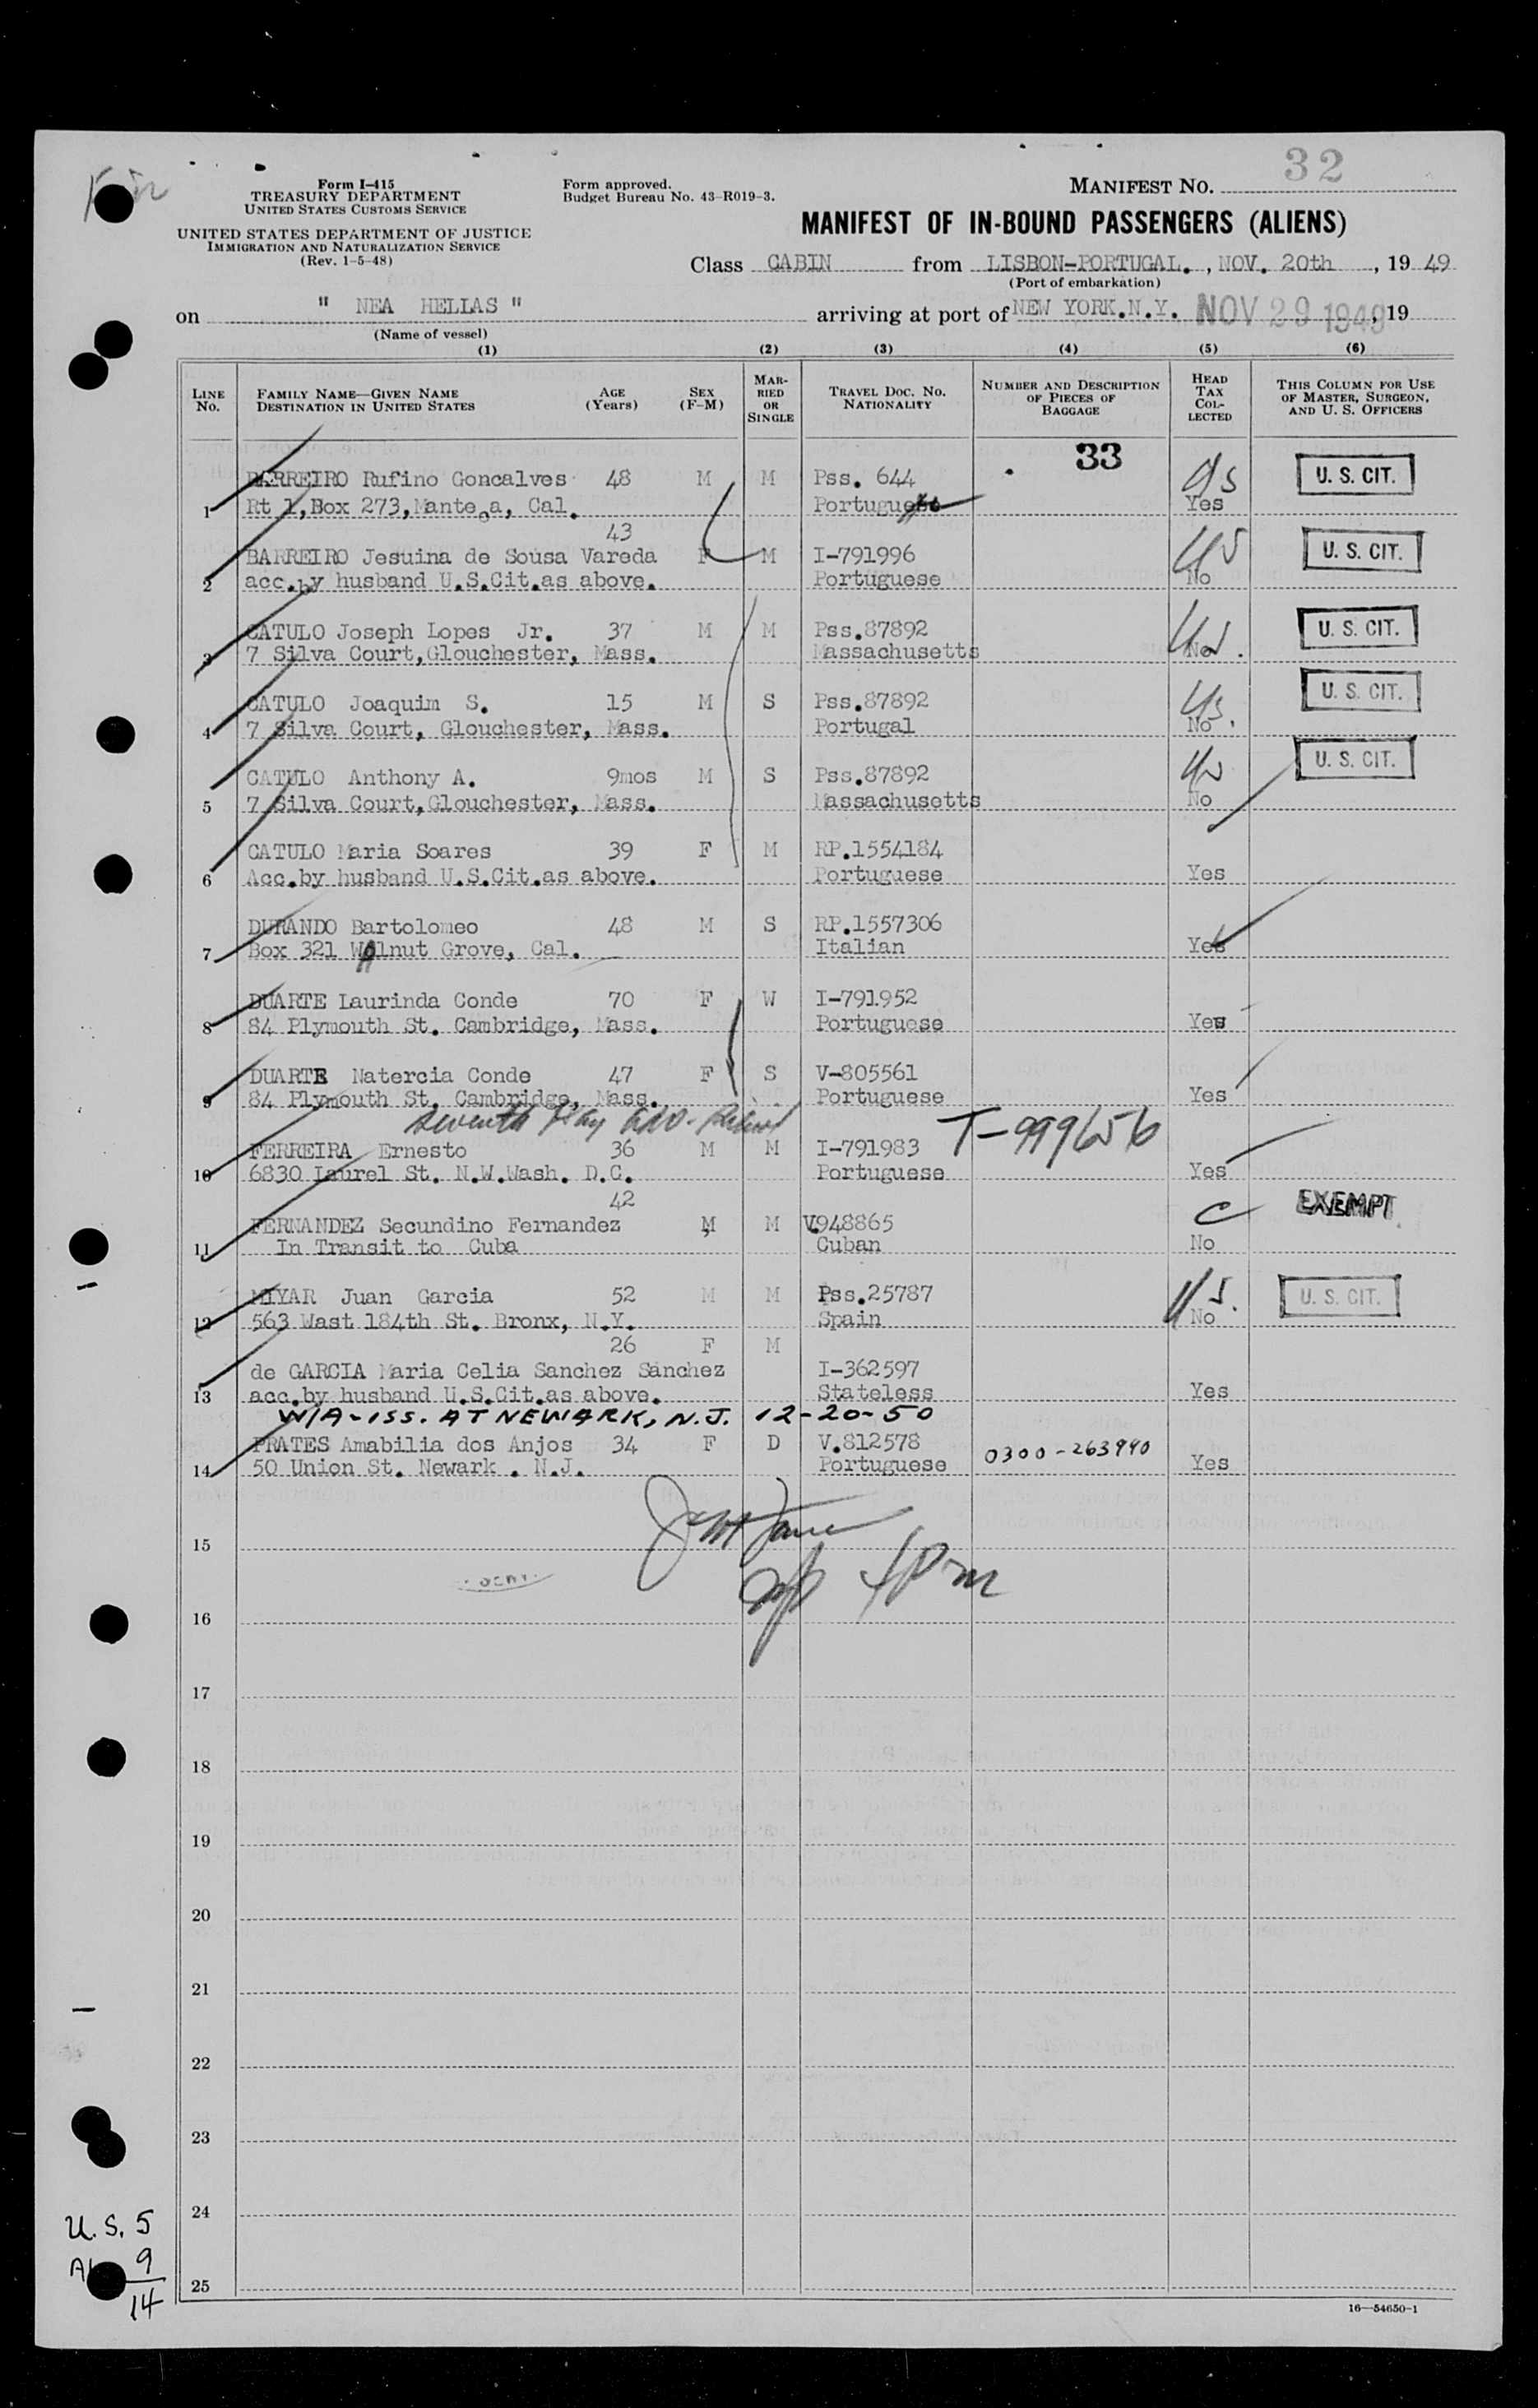 32
Form I-415
TREASURY DEPARTMENT
UNITED STATES CUSTOMS SERVICE
UNITED STATES DEPARTMENT OF JUSTICE
IMMIGRATION AND NATURALIZATION SERVICE
(Rev. 1-5-48)
Form approved.
Budget Bureau No. 43-R019-3.
MANIFEST No.
MANIFEST OF IN-BOUND PASSENGERS (ALIENS)
Class CABIN from LISBON-PORTUGAL. , NOV. 20th , 19 49
(Port of embarkation)
on " NEA HELLAS " arriving at port of NEW YORK.N.Y. NOV 29 1949, 19
(Name of vessel)
(1) (2) (3) (4) (5) (6)
LINE No. FAMILY NAME—GIVEN NAME DESTINATION IN UNITED STATES AGE (Years) SEX (F-M) MARRIED OR SINGLE TRAVEL DOC. NO. NATIONALITY NUMBER AND DESCRIPTION OF PIECES OF BAGGAGE HEAD TAX COLLECTED THIS COLUMN FOR USE OF MASTER, SURGEON, AND U. S. OFFICERS
33
BARREIRO Rufino Goncalves 48 M M Pss. 644 US U. S. CIT.
1 Rt 1,Box 273,Manteca, Cal. Portuguese Yes
43
BARREIRO Jesuina de Sousa Vareda F M I-791996 US U. S. CIT.
2 acc.by husband U.S.Cit.as above. Portuguese No
CATULO Joseph Lopes Jr. 37 M M Pss.87892 US U. S. CIT.
3 7 Silva Court,Glouchester, Mass. Massachusetts No
CATULO Joaquim S. 15 M S Pss.87892 US U. S. CIT.
4 7 Silva Court, Glouchester, Mass. Portugal No
CATULO Anthony A. 9mos M S Pss.87892 US U. S. CIT.
5 7 Silva Court,Glouchester, Mass. Massachusetts No
CATULO Maria Soares 39 F M RP.1554184
6 Acc.by husband U.S.Cit.as above. Portuguese Yes
DURANDO Bartolomeo 48 M S RP.1557306
7 Box 321 Walnut Grove, Cal. Italian Yes
DUARTE Laurinda Conde 70 F W I-791952
8 84 Plymouth St. Cambridge, Mass. Portuguese Yes
DUARTE Natercia Conde 47 F S V-805561
9 84 Plymouth St. Cambridge, Mass. Portuguese Yes
Seventh Day T-999656
FERREIRA Ernesto 36 M M I-791983
10 6830 Laurel St. N.W.Wash. D.C. Portuguese Yes
42
FERNANDEZ Secundino Fernandez M M V.948865 C EXEMPT
11 In Transit to Cuba Cuban No
MIYAR Juan Garcia 52 M M Pss.25787 US. U. S. CIT.
12 563 Wast 184th St. Bronx, N.Y. Spain No
26 F M
de GARCIA Maria Celia Sanchez Sanchez I-362597
13 acc.by husband U.S.Cit.as above. Stateless Yes
W/A-ISS. AT NEWARK, N.J. 12-20-50
PRATES Amabilia dos Anjos 34 F D V.812578 0300-263990
14 50 Union St. Newark . N.J. Portuguese Yes
15
16
17
18
19
20
21
22
23
24
25
U. S. 5
9
14
16—54650-1